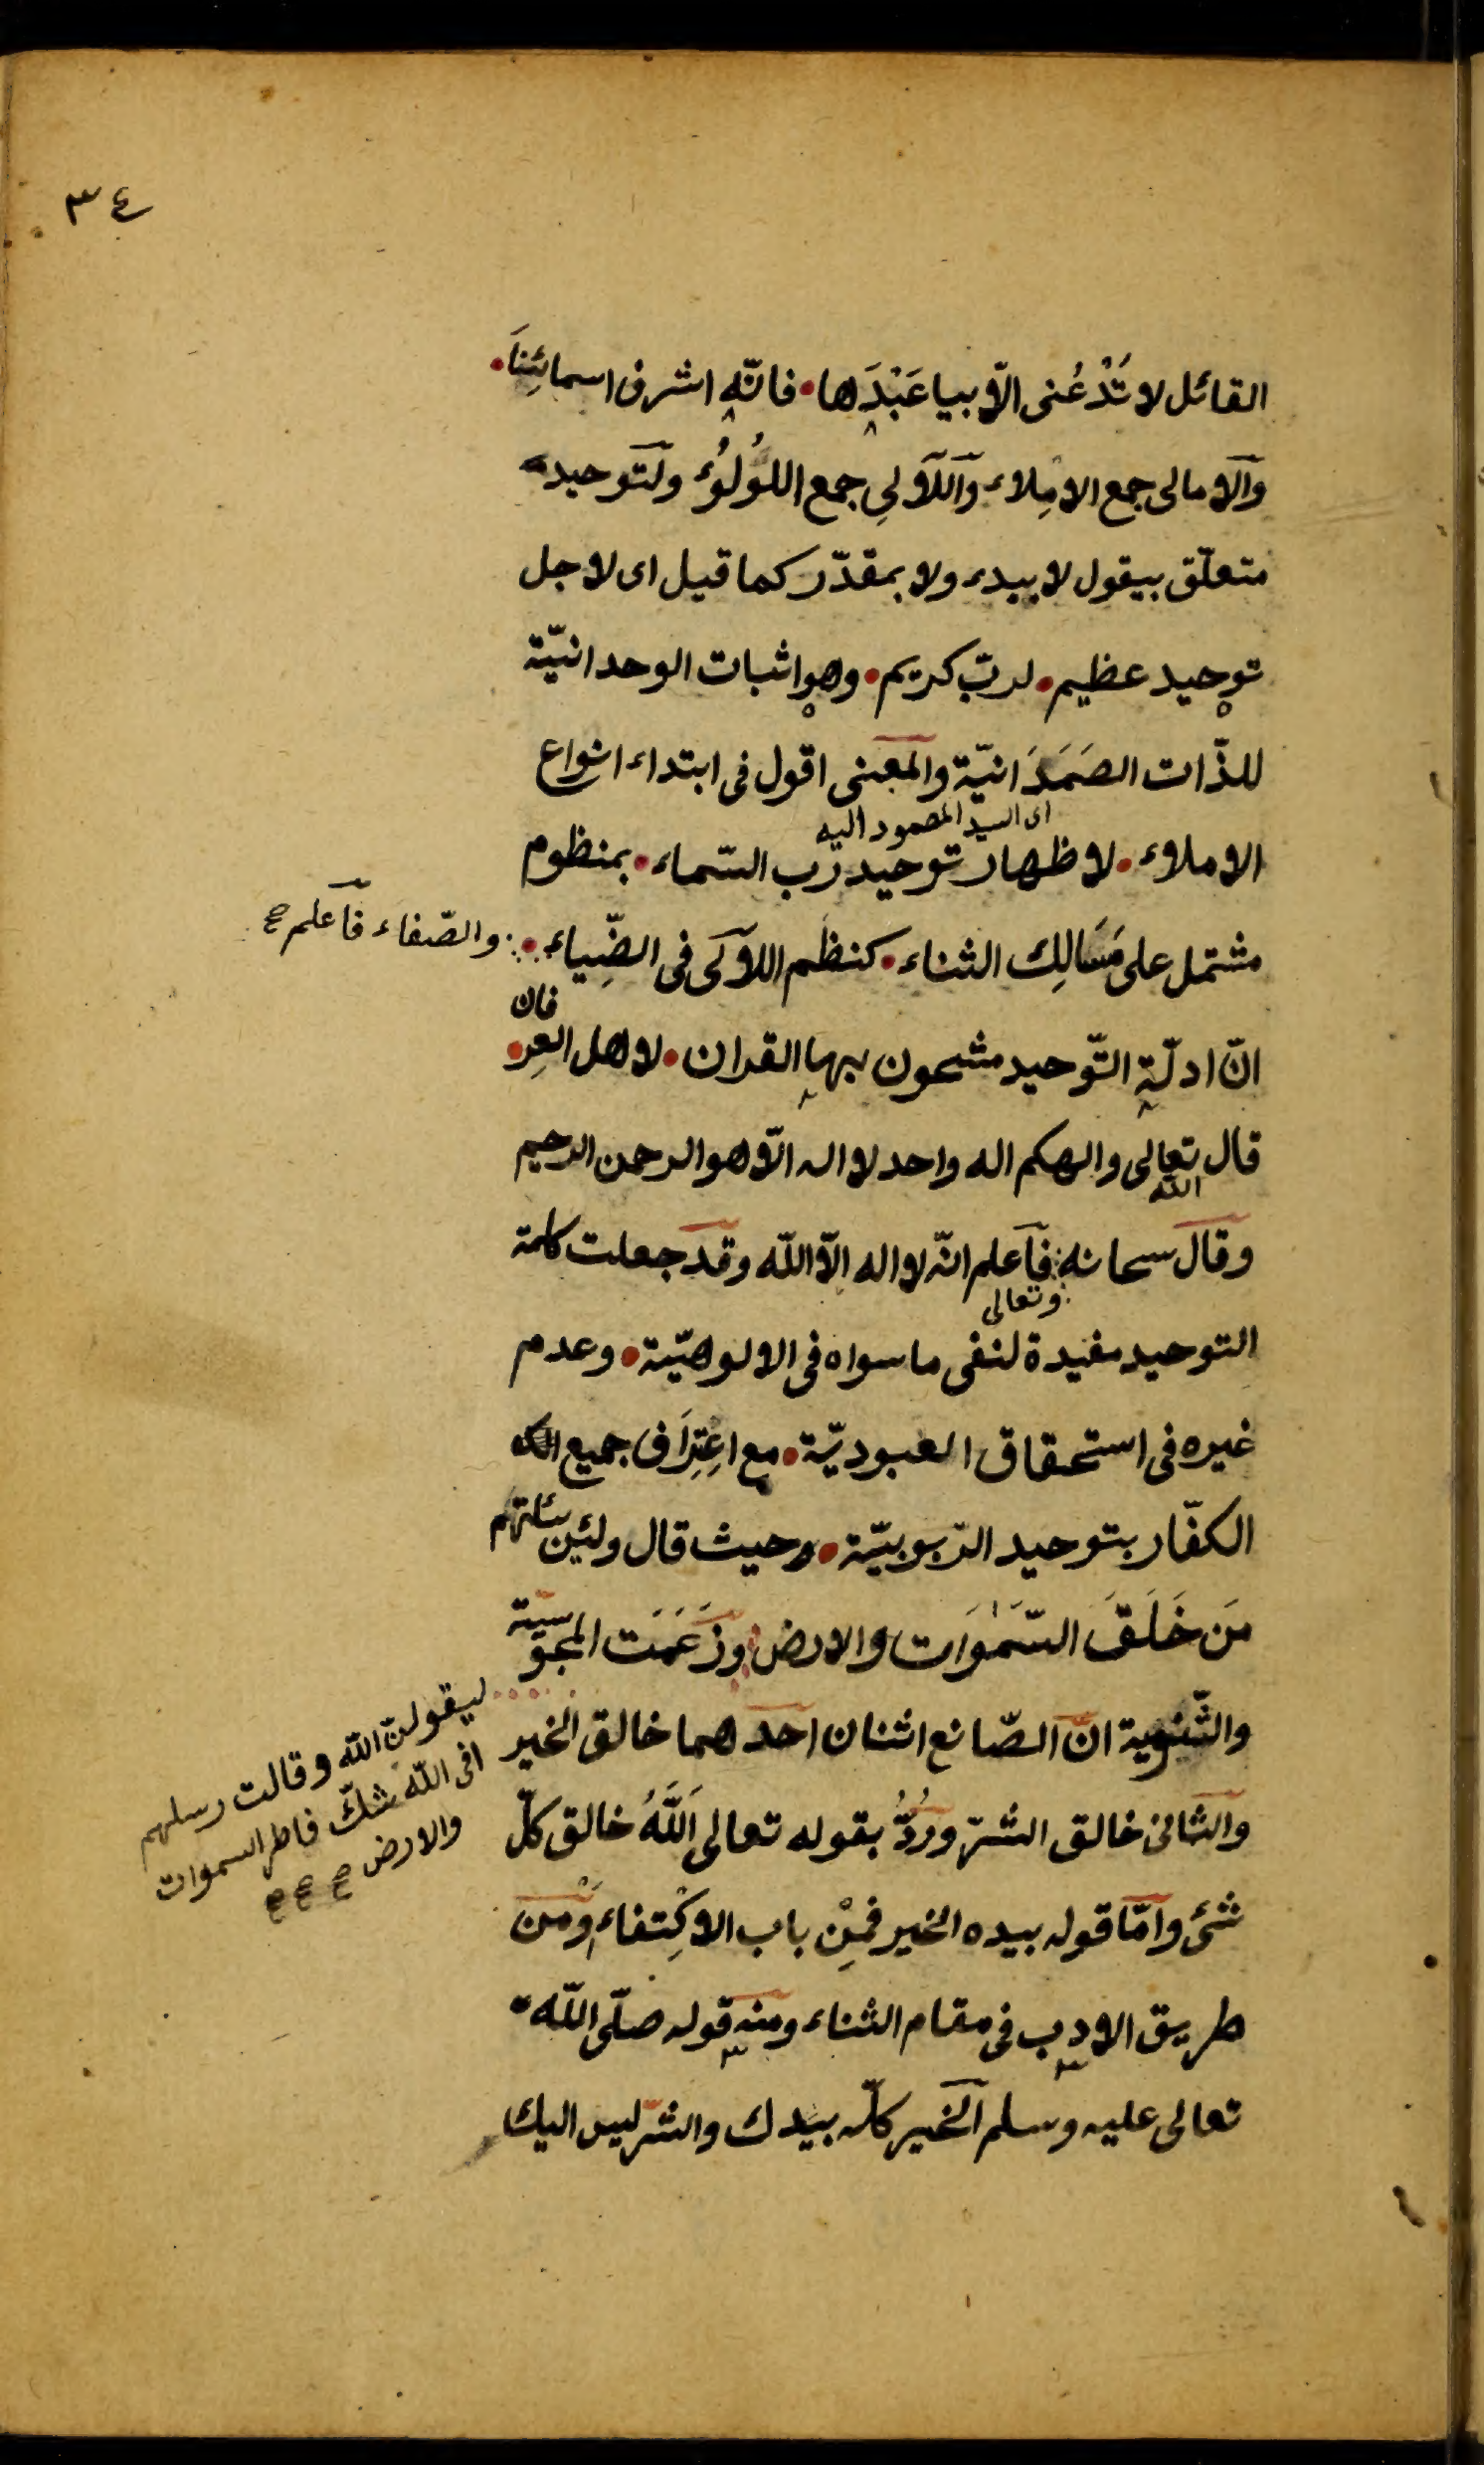 ٣٤
القائل لا تَدْعُنى الّا بيا عَبْدَها • فانّه اشرف اسمائِنَا •
والامالى جمع الامِلاء واللآلىِ جمع اللُؤلُؤ ولتوحيده
متعلّق بيقول لا ببدء ولا بمقدّر كما قيل اى لاجل
توحيد عظيم • لربّ كريم • وهو اثبات الوحدانيّة
للذّات الصَمَدَانيّة والمعنى اقول فى ابتداء انواع
اى السيد المصمود اليه
الاملاء • لاظهار توحيد رب السّماء • بمنظوم
مشتمل على مَسَالِك الثناء • كنظم اللآلى فى الضِّياء •
والصّفاء فاعلم صح
انّ ادلّة التّوحيد مشحون بها القران • لاهل العِرفان •
قال الله تعالى والهكم اله واحد لا اله الّا هو الرحمن الرحيم
وقال سبحانه وتعالى فاعلم انّه لا اله الّا الله وقد جعلت كلمة
التوحيد مفيدة لنفى ما سواه فى الالوهيّة • وعدم
غيره فى استحقاق العبوديّة • مع اعِتِرَاف جميع
الكفّار بتوحيد الرّبوبيّة • حيث قال ولئن سئلتهم
مَن خَلَقَ السّمٰوَات والارض وزَعَمَت المجوسيّة
ليقولنّ الله وقالت رسلهم
افى الله شكّ فاطر السموات
والارض صح صح صح
والثّنوية انّ الصّانع اثنان احدهما خالق الخير
والثانى خالق الشرّ ورُدُّ بقوله تعالى اَللَّهُ خالق كلّ
شئ وامّا قوله بيده الخير فمِنْ باب الاكِتفاء وْمن
طريق الادب فى مقام الثناء ومنه قوله صلّى الله
تعالى عليه وسلم الخير كلّه بيدك والشرّ ليس اليك